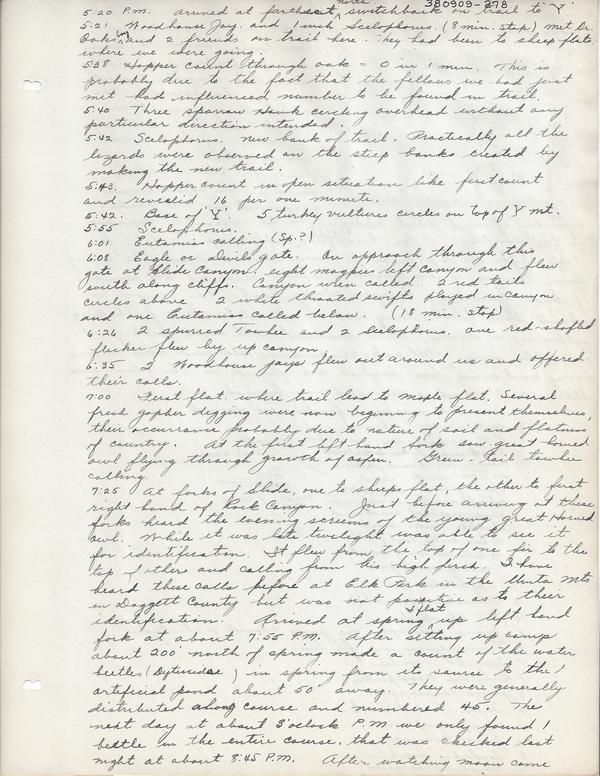 380909-278
5:20 P.M. arrived at farthest north switchback on trail to "Y"
5:21 Woodhouse Jay. and 1 inch Scelophorus. (8 min. stop) met Dr.
Oaks and 2 friends on trail here. They had been to sheep flats
where we were going.
5:38 Hopper count through oak = 0 in 1 min. This is
probably due to the fact that the fellows we had just
met had influenced number to be found in trail.
5:40 Three sparrow Hawk circling overhead without any
particular direction intended.
5:42 Scelophorus. new bank of trail. Practically all the
lizards were observed on the steep banks created by
making the new trail.
5:43. Hopper count in open situation like first count
and revealed 16 per one minute.
5:42. Base of "Y". 5 turkey vultures circles on top of Y mt.
5:55 Scelophorus.
6:01 Eutamias calling (Sp.?)
6:08 Eagle or Devils gate. On approach through this
gate at Slide Canyon, eight magpies left canyon and flew
south along cliffs. Canyon wren called. 2 red tails
circles above 2 white throated swifts played in canyon
and one Eutamias called below. (18 min. stop)
6:26 2 spurred Towhee and 2 Scelophorus. one red-shafted
flicker flew by up canyon.
6:35 2 Woodhouse jays flew out around us and offered
their calls.
7:00 First flat. where trail lead to maple flat. Several
fresh gopher digging were now beginning to present themselves,
their occurrance probably due to nature of soil and flatness
of country. At the first left hand fork saw great horned
owl flying through growth of aspen. Green-tail towhee
calling.
7:25 At forks of Slide, one to sheeps flat, the other to first
right hand of Rock Canyon. Just before arriving at these
forks heard the evening screems of the young great Horned
owl. While it was late twilight was able to see it
for identification. It flew from the top of one fir to the
top of others and calling from his high perch. I have
heard these calls before at Elk Park in the Uinta Mts
in Daggett County but was not positive as to their
identification. Arrived at spring & flat up left hand
fork at about 7:55 P.M. After setting up camp
about 200' north of spring made a count of the water
beetles (Dytiscidae) in spring from its source to the
artificial pond about 50' away. They were generally
distributed along course and numbered 45. The
next day at about 3 oclock P.M we only found 1
beetle in the entire course, that was checked last
night at about 8:45 P.M. After watching moon come